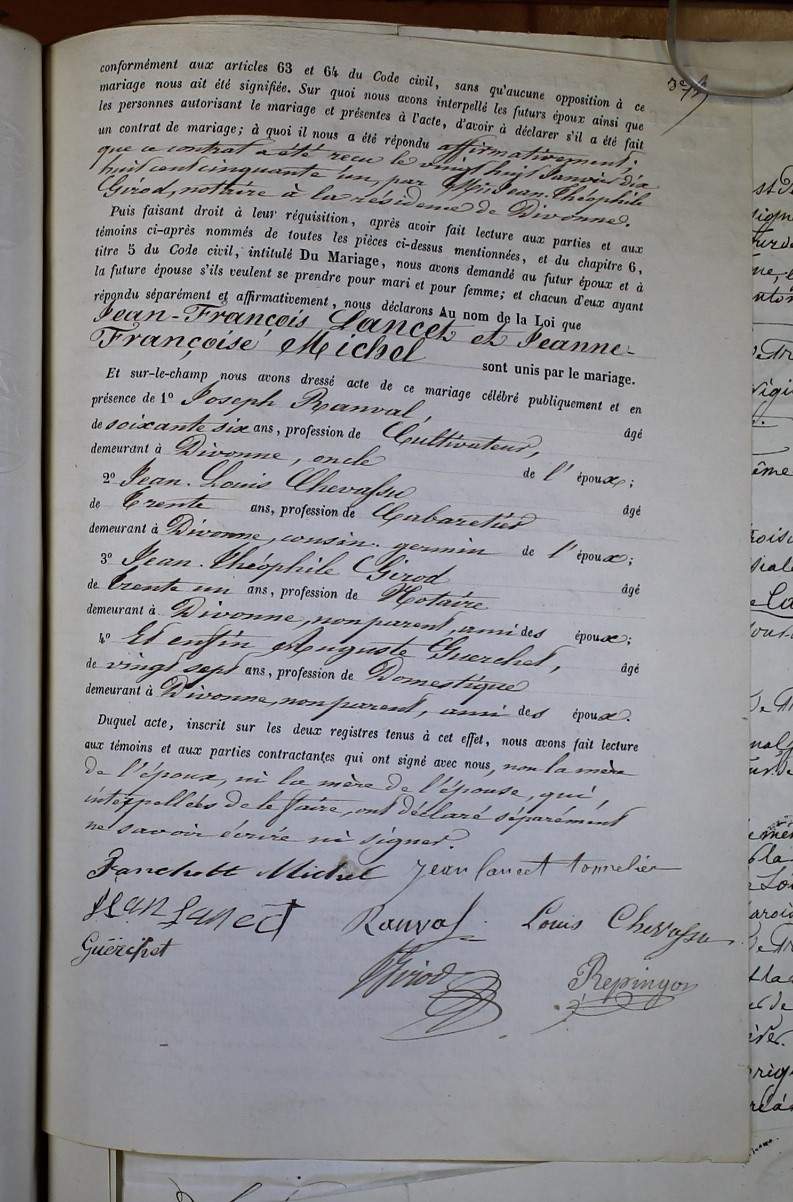 conformément aux articles 63 et 64 du Code civil, sans qu'aucune opposition à ce
mariage nous ait été signifiée. Sur quoi nous avons interpellé les futurs époux ainsi que
les personnes autorisant le mariage et présentes à l'acte, d'avoir à déclarer s'il a été fait
un contrat de mariage; à quoi il nous a été répondu affirmativement;
que ce contrat a été reçu le vingt huit Janvier dix
huit cent cinquante un, par Jean-Théophile
Girod, notaire à la résidence de Divonne.
Puis faisant droit à leur réquisition, après avoir fait lecture aux parties et aux
témoins ci-après nommés de toutes les pièces ci-dessus mentionnées, et du chapitre 6,
titre 5 du Code civil, intitulé Du Mariage, nous avons demandé au futur époux et à
la future épouse s'ils veulent se prendre pour mari et pour femme; et chacun d'eux ayant
répondu séparément et affirmativement, nous déclarons Au nom de la Loi que
Jean-François Lancet et Jeanne-
Françoise Michel sont unis par le mariage.
Et sur-le-champ nous avons dressé acte de ce mariage célébré publiquement et en
présence de 1º Joseph Ranval, âgé
de soixante six ans, profession de Cultivateur,
demeurant à Divonne, oncle de l'époux;
2º Jean-Louis Chevassu âgé
de Trente ans, profession de Cabaretier
demeurant à Divonne, cousin-germain de l'époux;
3º Jean-Théophile Girod âgé
de trente un ans, profession de Notaire
demeurant à Divonne, non parent, ami des époux;
4º Et enfin Auguste Guerchet, âgé
de vingt sept ans, profession de Domestique
demeurant à Divonne, non parent, ami des époux.
Duquel acte, inscrit sur les deux registres tenus à cet effet, nous avons fait lecture
aux témoins et aux parties contractantes qui ont signé avec nous, non la mère
de l'époux, ni la mère de l'épouse, qui,
interpellées de le faire, ont déclaré séparément
ne savoir écrire ni signer.
Fanchette Michel Jean Lancet tonnelier
Jean Lancet Ranval Louis Chevassu
Guërchet
Girod Repingon